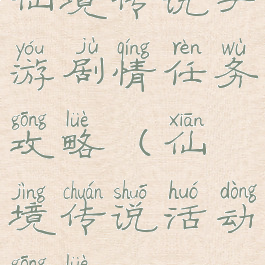 仙境传说手
yóu jù qíng rèn wù
游剧情任务
gōng lüè xiān
攻略（仙
jìng chuán shuō huó dòng
境传说活动
gōng lüè